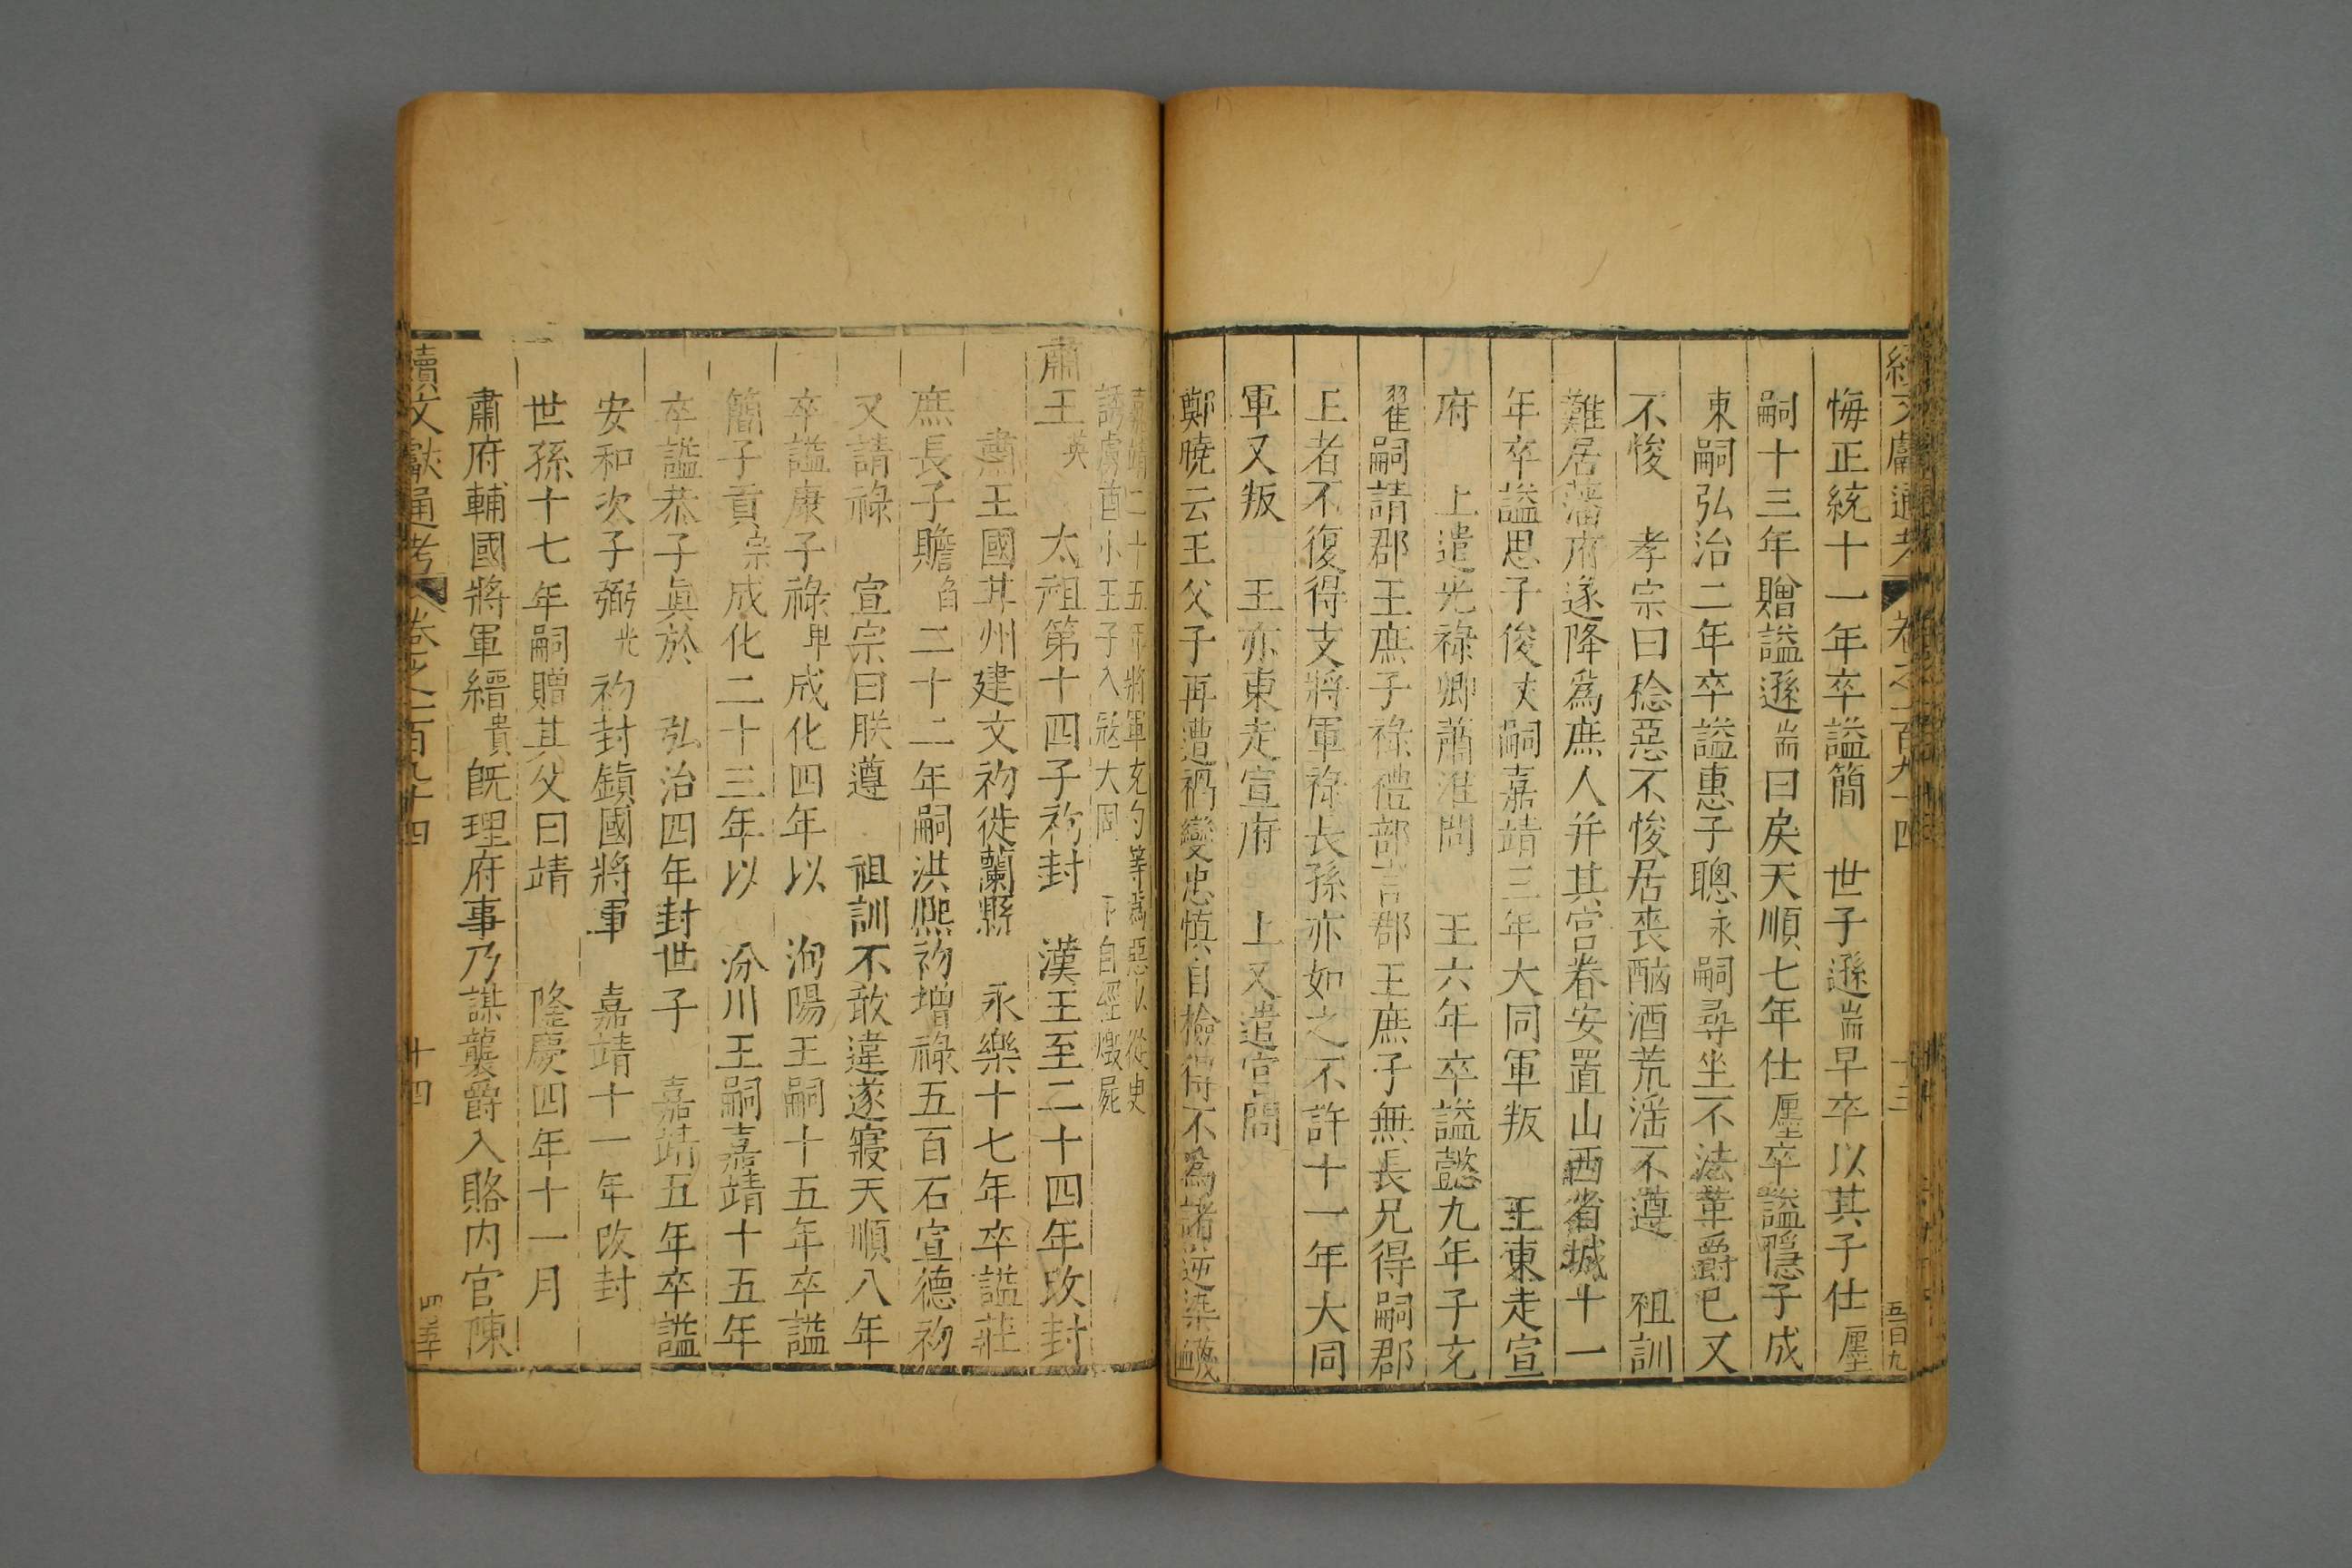 續文獻通考 卷之二百九十四 十三 五百九
悔正統十一年卒謚簡 世子遜耑早卒以其子仕㙻
嗣十三年贈謚遜耑曰戾天順七年仕㙻卒謚隱子成
東嗣弘治二年卒謚惠子聰永嗣尋坐不法革爵已又
不悛 孝宗曰稔惡不悛居喪酗酒荒淫不遵 祖訓
難居藩府遂降為庶人并其宮眷安置山西省城十一
年卒謚思子俊丈嗣嘉靖三年大同軍叛 王東走宣
府 上遣光祿卿蕭淮問 王六年卒謚懿九年子充
翟嗣請郡王庶子祿禮部言郡王庶子無長兄得嗣郡
王者不復得支將軍祿長孫亦如之不許十一年大同
軍又叛 王亦東走宣府 上又遣官問
鄭曉云王父子再遭禍變忠慎自檢得不為諸逆染衊
嘉靖二十五年將軍充灼等為惡以從史
誘虜酋小王子入寇大同 下自經燬屍
肅王英 太祖第十四子初封 漢王至二十四年改封
肅王國甘州建文初徙蘭縣 永樂十七年卒謚莊
庶長子贍焰二十二年嗣洪熙初增祿五百石宣德初
又請祿 宣宗曰朕遵 祖訓不敢違遂寢天順八年
卒謚康子祿埤成化四年以 洵陽王嗣十五年卒謚
簡子貢錝成化二十三年以 汾川王嗣嘉靖十五年
卒謚恭子真淤 弘治四年封世子 嘉靖五年卒謚
安和次子弼桄初封鎮國將軍 嘉靖十一年改封
世孫十七年嗣贈其父曰靖 隆慶四年十一月
肅府輔國將軍縉𤏳既理府事乃謀襲爵入賂內官陳
續文獻通考 卷之二百九十四 十四